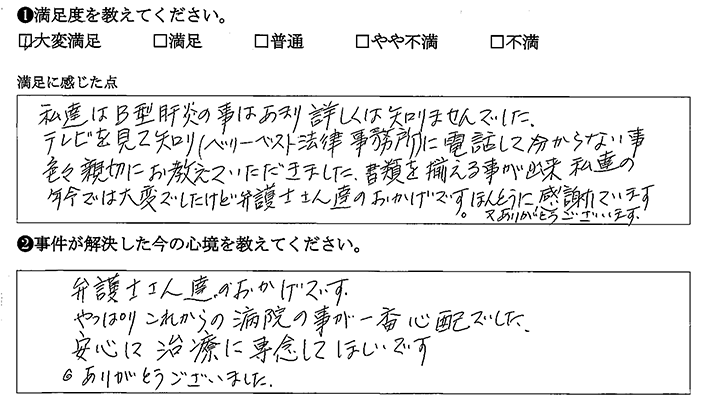 ❶満足度を教えてください。
☑大変満足 □満足 □普通 □やや不満 □不満
満足に感じた点
私達はB型肝炎の事はあまり詳しくは知りませんでした。
テレビを見て知り(ベリーベスト法律事務所)に電話して分からない事
色々親切にお教えていただきました、書類を揃える事が出来 私達の
年令では大変でしたけど弁護士さん達のおかげです。ほんとうに感謝れています
々ありがとうございます。
❷事件が解決した今の心境を教えてください。
弁護士さん達のおかげです。
やっぱりこれからの病院の事が一番心配でした。
安心に治療に専念してほしいです
◎ありがとうございました。